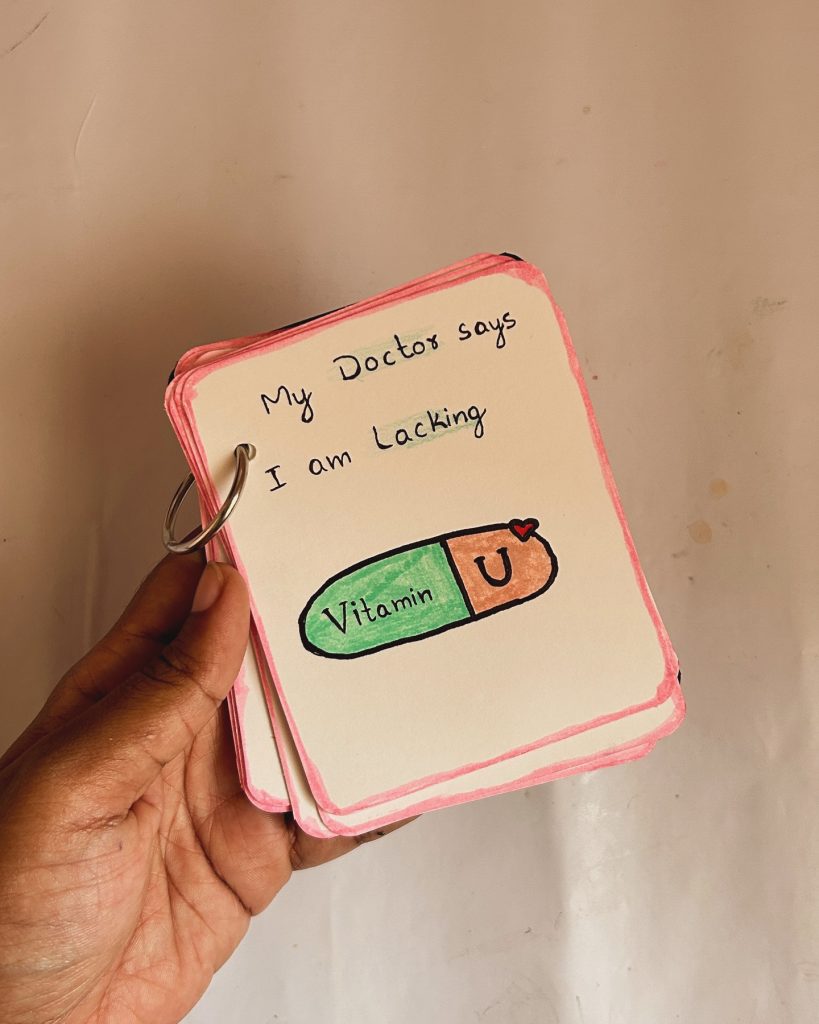 My Doctor says
I am Lacking
Vitamin U